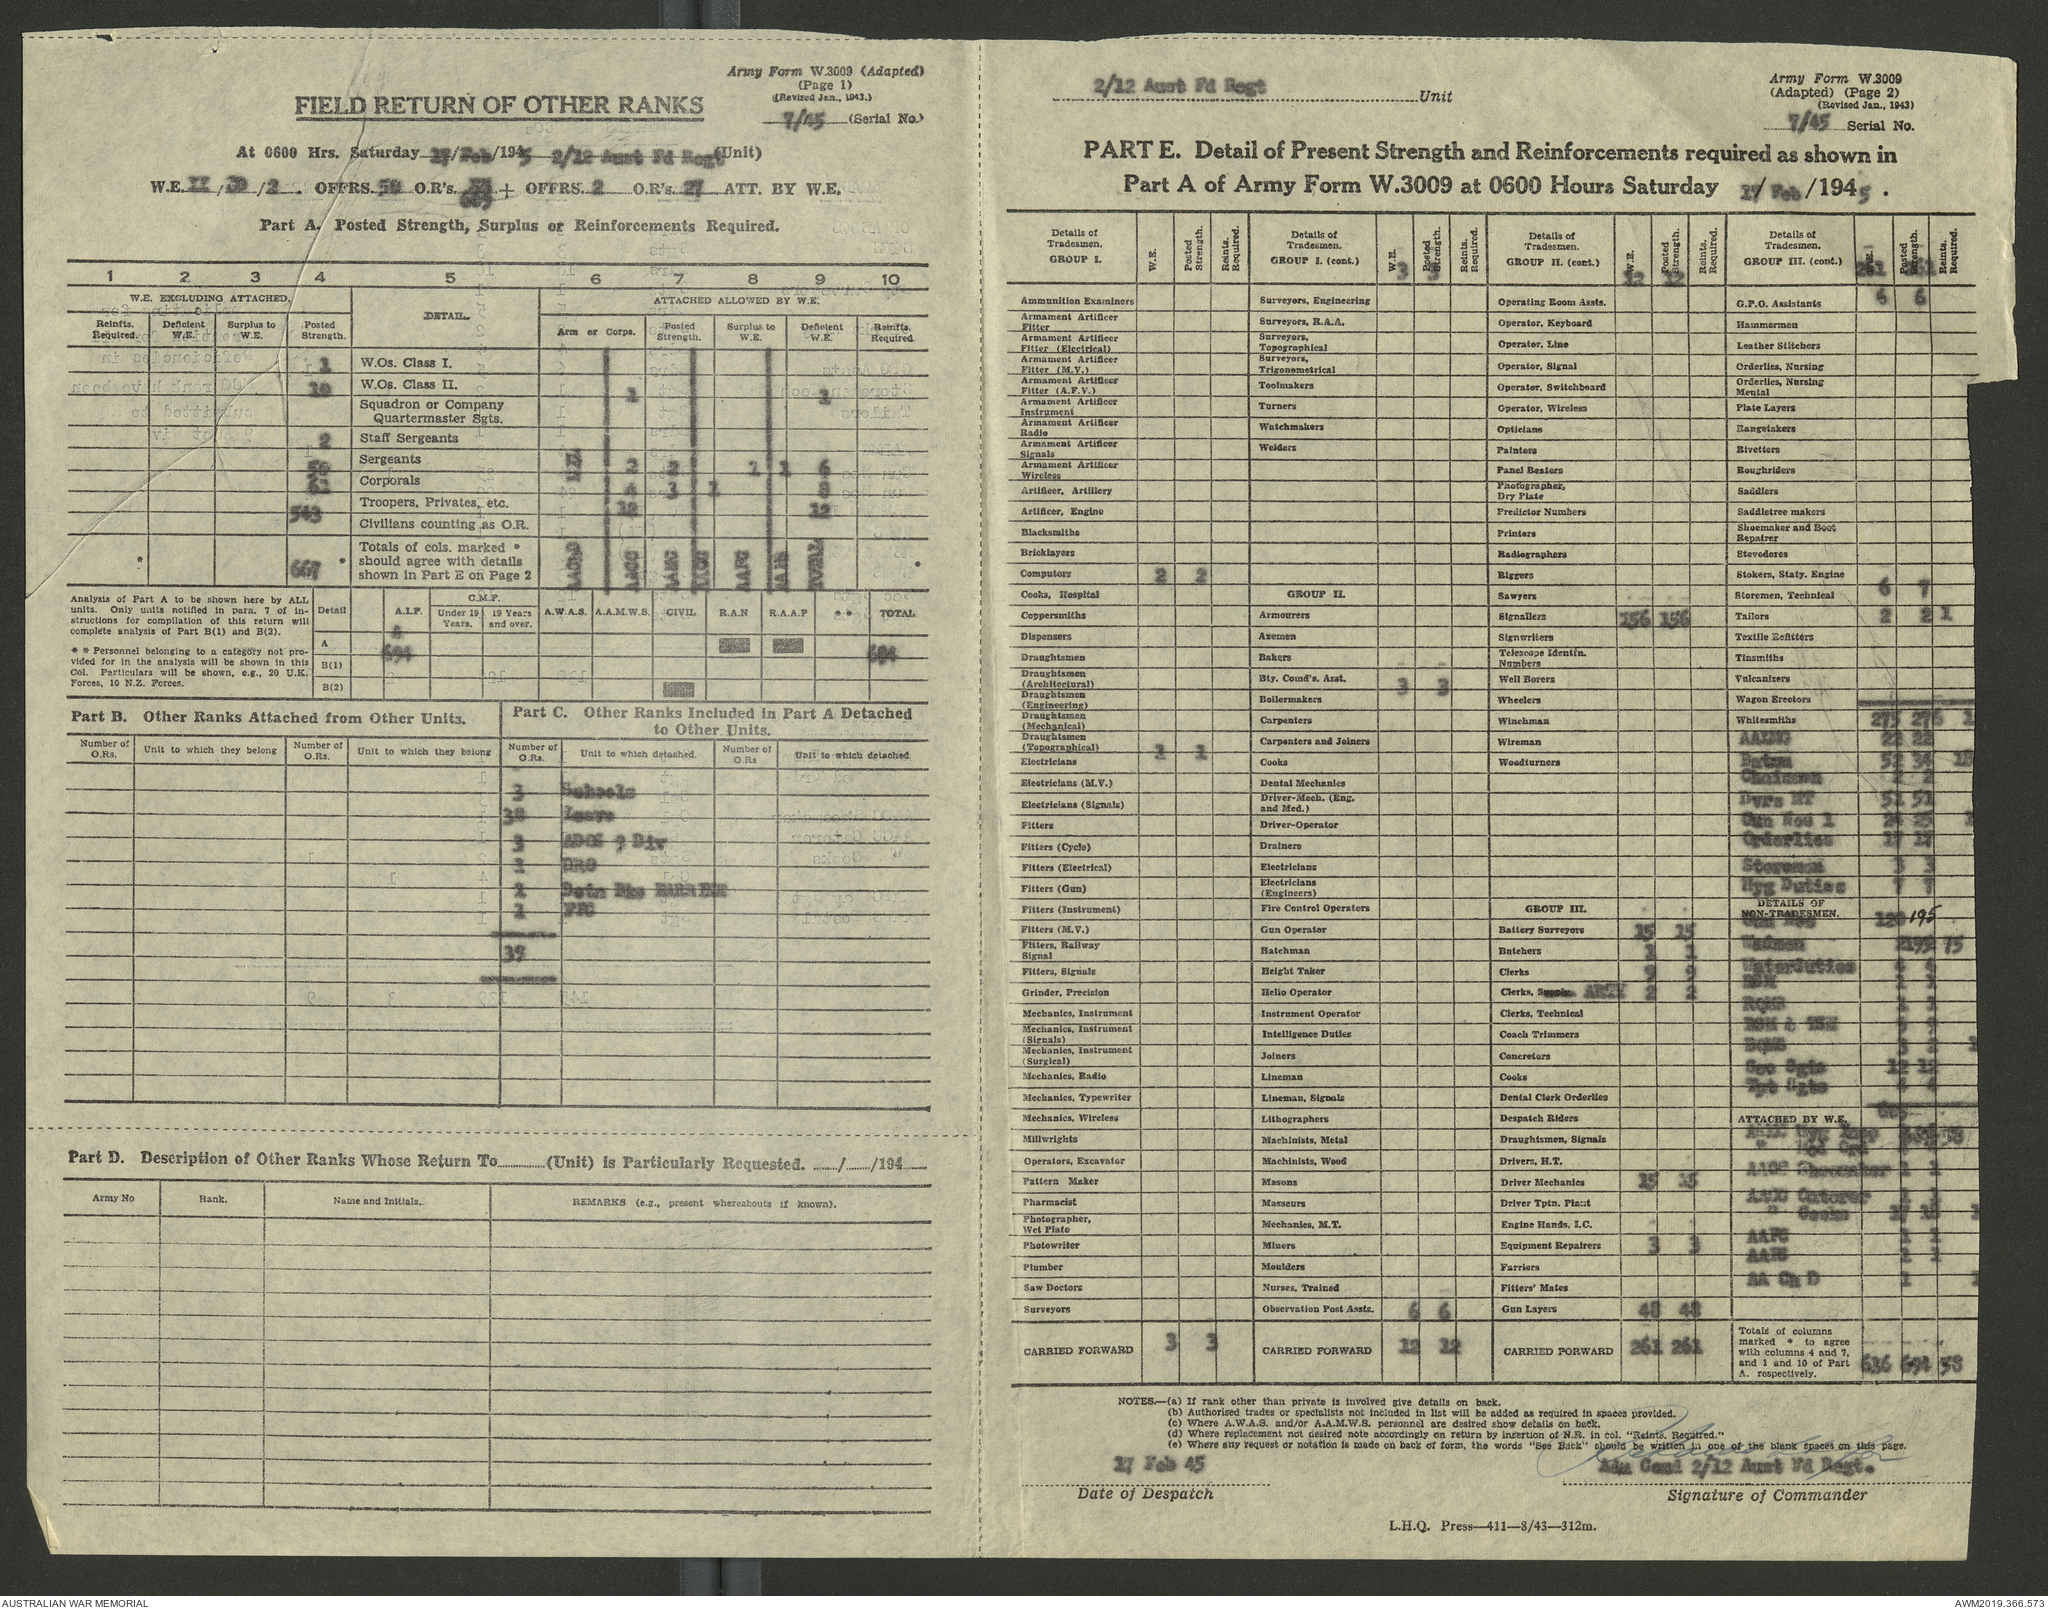 Army Form W.3009 (Adapted)
(Page 1)
(Revised Jan., 1943.)
FIELD RETURN OF OTHER RANKS
7/45 (Serial No.)
At 0600 Hrs. Saturday 17/Feb/1945 2/12 Aust Fd Regt (Unit)
W.E. II/30/2. OFFRS. O.R's. + OFFRS. 2 O.R's. 27 ATT. BY W.E.
609
Part A. Posted Strength, Surplus or Reinforcements Required.
1 2 3 4 5 6 7 8 9 10
W.E. EXCLUDING ATTACHED. DETAIL. ATTACHED ALLOWED BY W.E.
Reinfts. Required. Deficient W.E. Surplus to W.E. Posted Strength. Arm or Corps. Posted Strength. Surplus to W.E. Deficient W.E. Reinfts. Required.
1 W.Os. Class I.
10 W.Os. Class II.
Squadron or Company
Quartermaster Sgts.
2 Staff Sergeants
Sergeants
Corporals
543 Troopers, Privates, etc.
Civilians counting as O.R.
* 667 * Totals of cols. marked * should agree with details shown in Part E on Page 2 *
Analysis of Part A to be shown here by ALL units. Only units notified in para. 7 of instructions for compilation of this return will complete analysis of Part B(1) and B(2).
* * Personnel belonging to a category not provided for in the analysis will be shown in this Col. Particulars will be shown, e.g., 20 U.K. Forces, 10 N.Z. Forces.
Detail A.I.F. C.M.F. Under 19 Years. 19 Years and over. A.W.A.S. A.A.M.W.S. CIVIL R.A.N R.A.A.F * * TOTAL
A 694
B(1)
B(2)
Part B. Other Ranks Attached from Other Units.
Number of O.Rs. Unit to which they belong Number of O.Rs. Unit to which they belong
Part C. Other Ranks Included in Part A Detached to Other Units.
Number of O.Rs. Unit to which detached. Number of O.Rs Unit to which detached
3 Schools
30 Leave
3 ADOS 9 Div
1 DRO
39
Part D. Description of Other Ranks Whose Return To (Unit) is Particularly Requested. / /194
Army No Rank. Name and Initials. REMARKS (e.g., present whereabouts if known).
2/12 Aust Fd Regt Unit
Army Form W.3009
(Adapted) (Page 2)
(Revised Jan., 1943)
7/45 Serial No.
PART E. Detail of Present Strength and Reinforcements required as shown in
Part A of Army Form W.3009 at 0600 Hours Saturday 17/Feb/1945.
Details of Tradesmen. GROUP I. W.E. Posted Strength. Reints. Required.
Ammunition Examiners
Armament Artificer Fitter
Armament Artificer Fitter (Electrical)
Armament Artificer Fitter (M.V.)
Armament Artificer Fitter (A.F.V.)
Armament Artificer Instrument
Armament Artificer Radio
Armament Artificer Signals
Armament Artificer Wireless
Artificer, Artillery
Artificer, Engine
Blacksmiths
Bricklayers
Computors 2 2
Cooks, Hospital
Coppersmiths
Dispensers
Draughtsmen
Draughtsmen (Architectural)
Draughtsmen (Engineering)
Draughtsmen (Mechanical)
Draughtsmen (Topographical)
Electricians 1 1
Electricians (M.V.)
Electricians (Signals)
Fitters
Fitters (Cycle)
Fitters (Electrical)
Fitters (Gun)
Fitters (Instrument)
Fitters (M.V.)
Fitters, Railway Signal
Fitters, Signals
Grinder, Precision
Mechanics, Instrument
Mechanics, Instrument (Signals)
Mechanics, Instrument (Surgical)
Mechanics, Radio
Mechanics, Typewriter
Mechanics, Wireless
Millwrights
Operators, Excavator
Pattern Maker
Pharmacist
Photographer, Wet Plate
Photowriter
Plumber
Saw Doctors
Surveyors
CARRIED FORWARD 3 3
Details of Tradesmen. GROUP I. (cont.) W.E. Posted Strength. Reints. Required.
3 3
Surveyors, Engineering
Surveyors, R.A.A.
Surveyors, Topographical
Surveyors, Trigonometrical
Toolmakers
Turners
Watchmakers
Welders
GROUP II.
Armourers
Axemen
Bakers
Bty. Comd's. Asst. 3 3
Boilermakers
Carpenters
Carpenters and Joiners
Cooks
Dental Mechanics
Driver-Mech. (Eng. and Med.)
Driver-Operator
Drainers
Electricians
Electricians (Engineers)
Fire Control Operators
Gun Operator
Hatchman
Height Taker
Helio Operator
Instrument Operator
Intelligence Duties
Joiners
Lineman
Lineman, Signals
Lithographers
Machinists, Metal
Machinists, Wood
Masons
Masseurs
Mechanics, M.T.
Miners
Moulders
Nurses, Trained
Observation Post Assts. 6 6
CARRIED FORWARD 12 12
Details of Tradesmen. GROUP II. (cont.) W.E. Posted Strength. Reints. Required.
12 12
Operating Room Assts.
Operator, Keyboard
Operator, Line
Operator, Signal
Operator, Switchboard
Operator, Wireless
Opticians
Painters
Panel Beaters
Photographer, Dry Plate
Predictor Numbers
Printers
Radiographers
Riggers
Sawyers
Signallers 156 156
Signwriters
Telescope Identfn. Numbers
Well Borers
Wheelers
Winchman
Wireman
Woodturners
GROUP III.
Battery Surveyors 15 15
Butchers
Clerks
Clerks, Supply ARTY 2 2
Clerks, Technical
Coach Trimmers
Concretors
Cooks
Dental Clerk Orderlies
Despatch Riders
Draughtsmen, Signals
Drivers, H.T.
Driver Mechanics 15 15
Driver Tptn. Plant
Engine Hands, I.C.
Equipment Repairers 3 3
Farriers
Fitters' Mates
Gun Layers 48 48
CARRIED FORWARD 261 261
Details of Tradesmen. GROUP III. (cont.) W.E. Posted Strength. Reints Required.
261 261
G.P.O. Assistants 6 6
Hammermen
Leather Stitchers
Orderlies, Nursing
Orderlies, Nursing Mental
Plate Layers
Rangetakers
Rivetters
Roughriders
Saddlers
Saddletree makers
Shoemaker and Boot Repairer
Stevedores
Stokers, Staty. Engine
Storemen, Technical 6 7
Tailors 2 2 1
Textile Refitters
Tinsmiths
Vulcanizers
Wagon Erectors
Whitesmiths 275 276 1
AAXMG 22 22
Batmn 52 34 18
Dvrs MT 51 51
Gun Nos 1 24 23
Orderlies 17 17
Storeman 3 3
Hyg Duties
DETAILS OF NON-TRADESMEN.
120 195
75
Waterduties
BSM
RQMS
BQMS
Sec Sgts
ATTACHED BY W.E.
AAOC Shoemaker
AACC Caterer
" Cooks
AAPC
AA Ch D
Totals of columns marked * to agree with columns 4 and 7, and 1 and 10 of Part A. respectively. 636 694 58
NOTES.—(a) If rank other than private is involved give details on back.
(b) Authorised trades or specialists not included in list will be added as required in spaces provided.
(c) Where A.W.A.S. and/or A.A.M.W.S. personnel are desired show details on back.
(d) Where replacement not desired note accordingly on return by insertion of N.R. in col. "Reints. Required."
(e) Where any request or notation is made on back of form, the words "See Back" should be written in one of the blank spaces on this page.
17 Feb 45
Date of Despatch
Adm Comd 2/12 Aust Fd Regt.
Signature of Commander
L.H.Q. Press—411—8/43—312m.
AUSTRALIAN WAR MEMORIAL
AWM2019.366.573